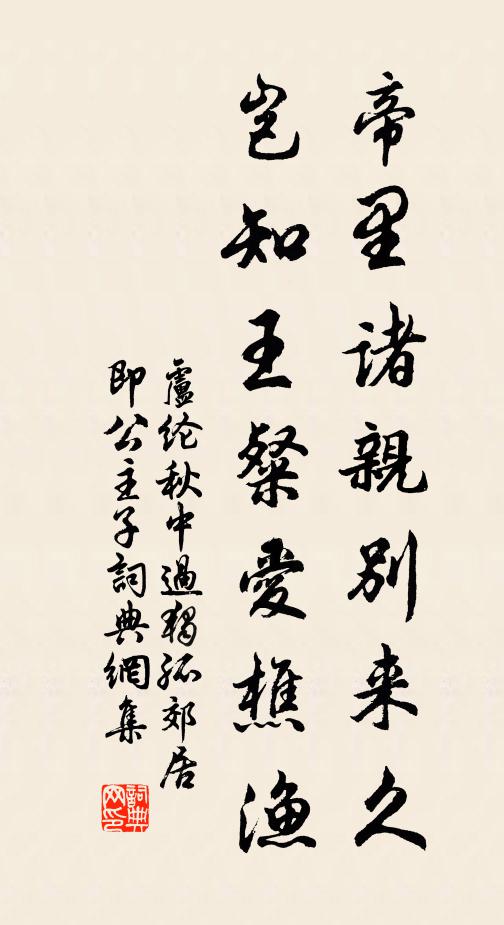 帝里諸親別来久
岂知王粲愛樵漁
盧纶秋中過獨孤郊居
即公主子詞典網集
詞典网印